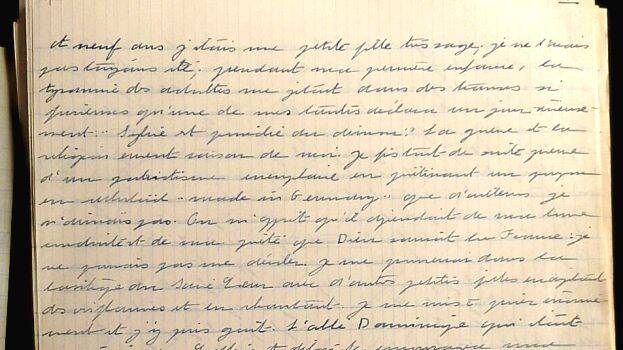 et neuf ans j'étais une petite fille très sage, je ne l'avais
pas toujours été ; pendant ma première enfance, la
tyrannie des adultes me jetait dans des transes si
furieuses qu'une de mes tantes déclara un jour sérieuse-
ment : "Sylvie est possédée du démon". La guerre et la
religion eurent raison de moi. Je fis tout de suite preuve
d'un patriotisme exemplaire en piétinant un poupon
en celluloïd "made in Germany" que d'ailleurs je
n'aimais pas. On m'apprit qu'il dépendait de ma bonne
conduite et de ma piété que Dieu sauvât la France : je
ne pouvais pas me dérober. Je me promenai dans la
basilique du Sacré-Coeur avec d'autres petites filles en agitant
des oriflammes et en chantant. Je me mis à prier énormé-
ment et j'y pris goût. L'abbé Dominique qui était